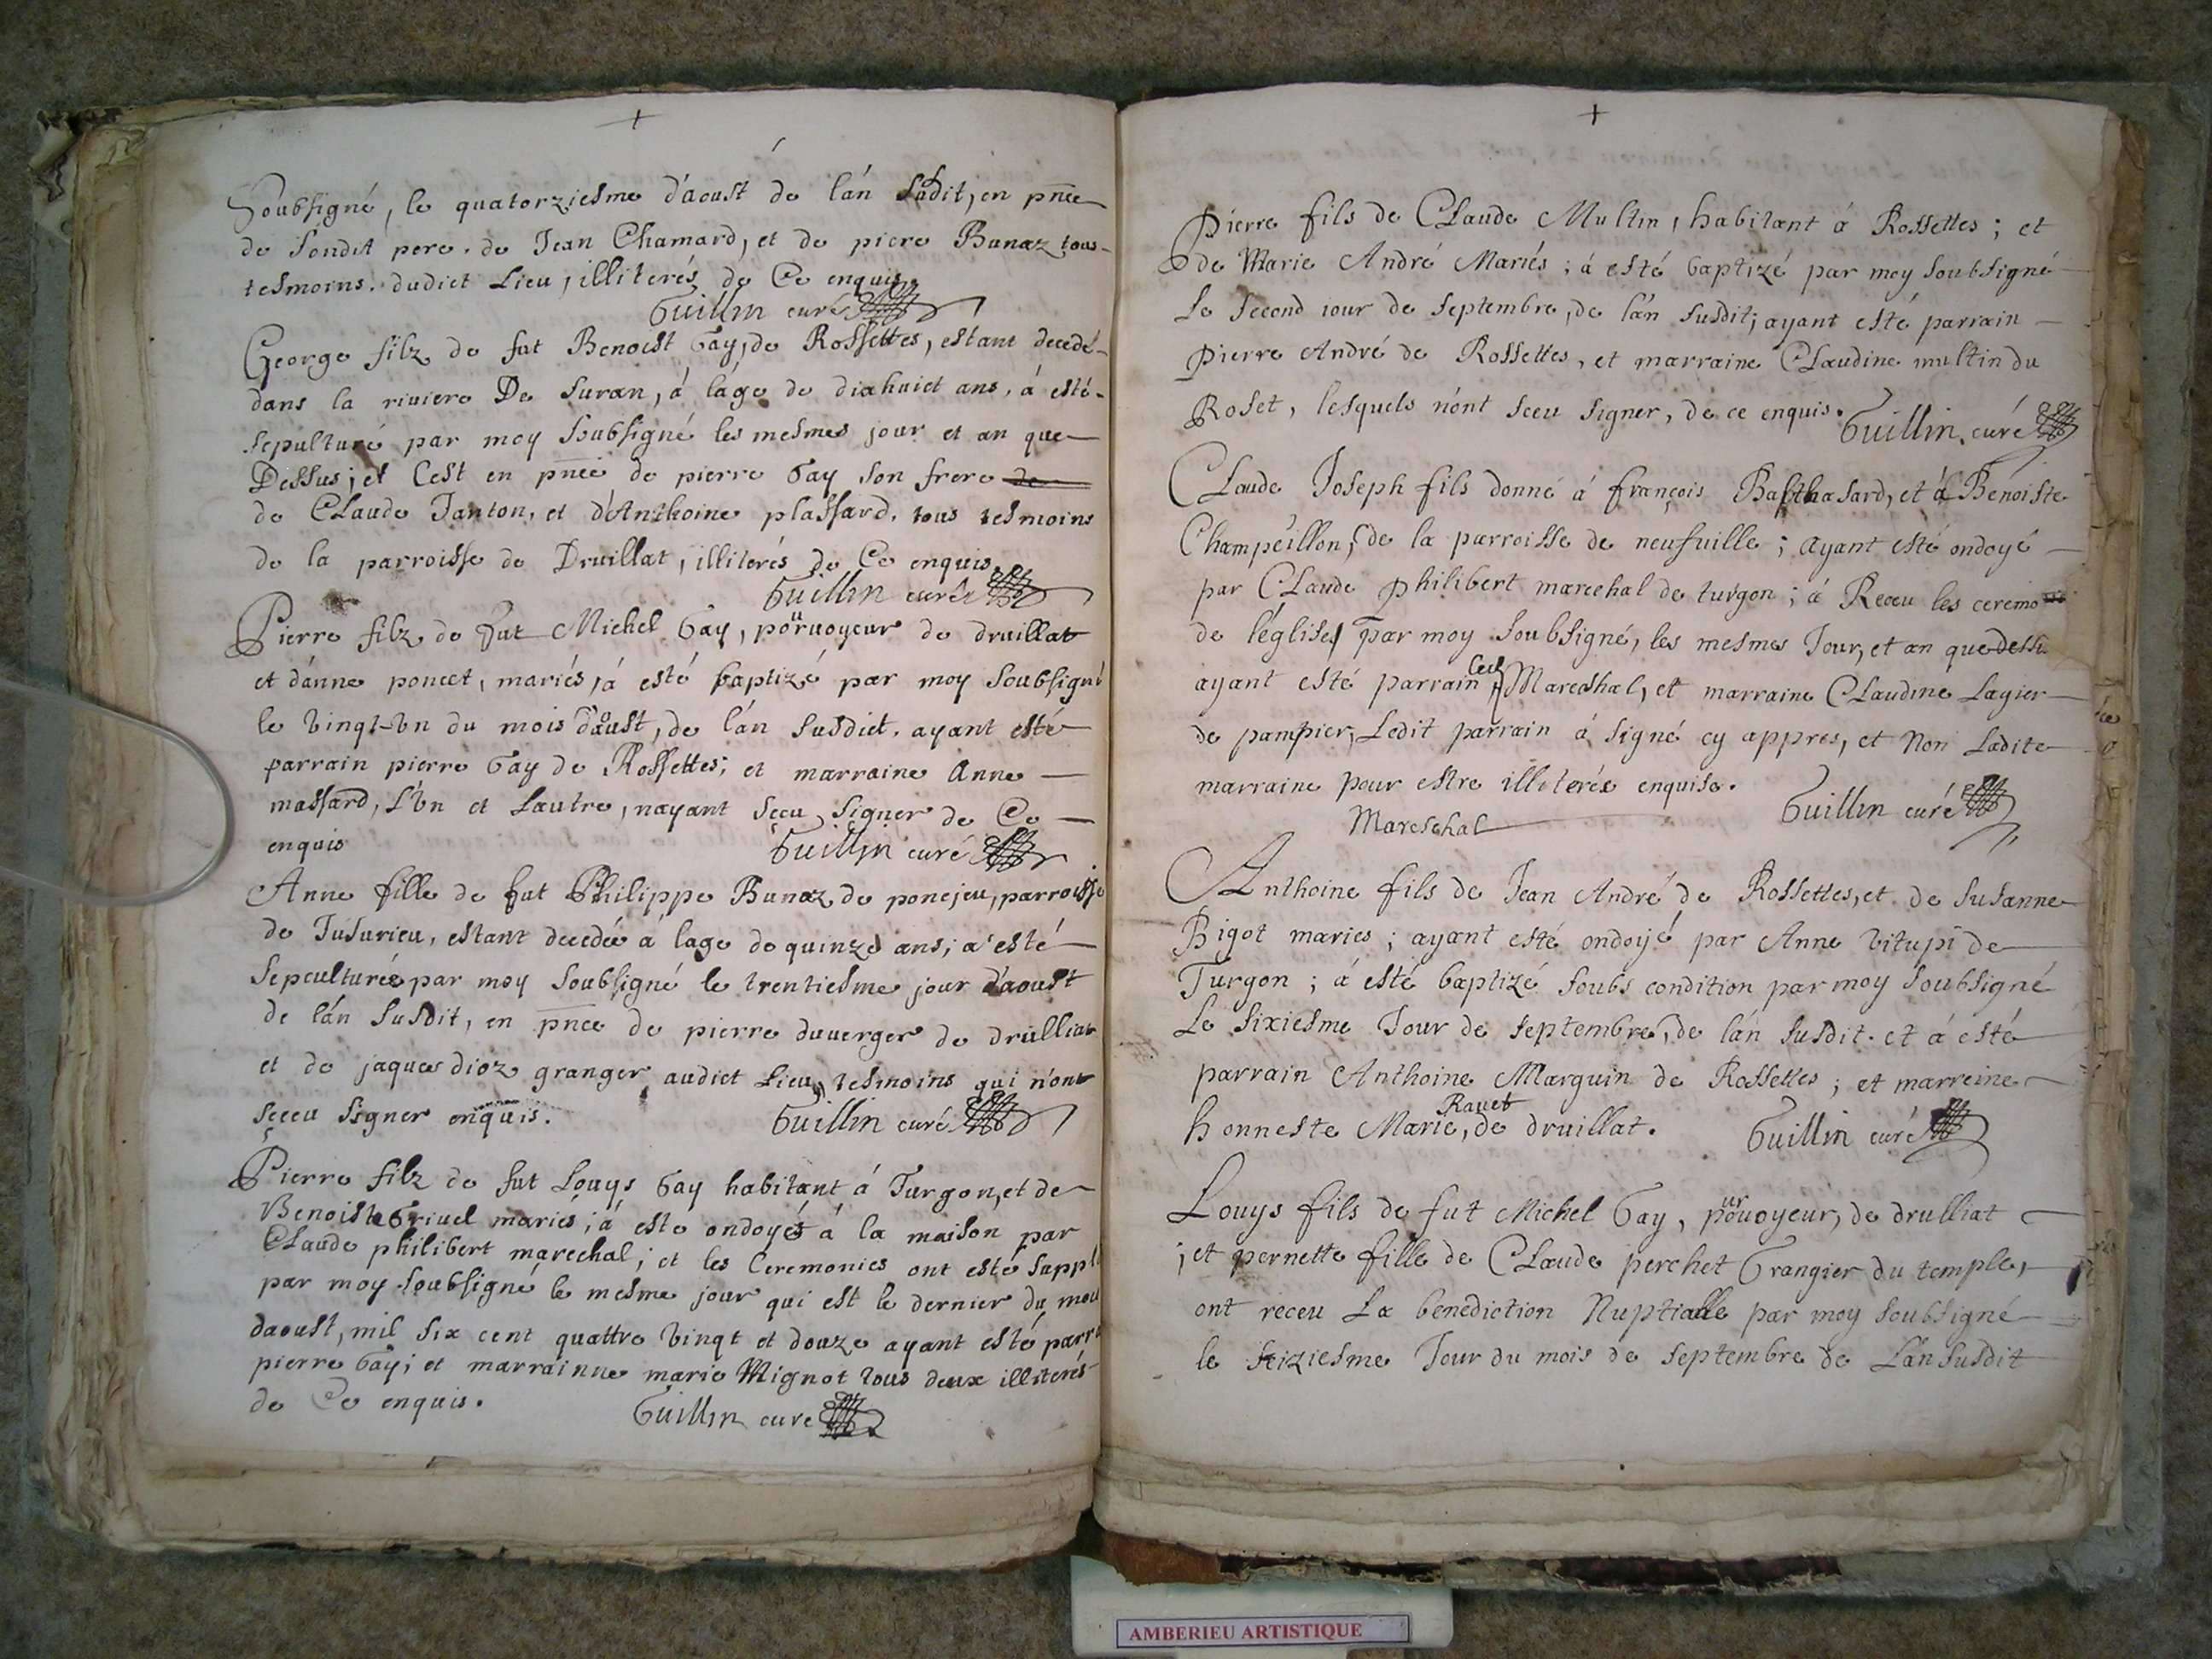 +
Soubsigné, le quatorziesme d'aoust de l'an susdit, en pñce
de sondit pere. de Jean Chamard, et de piere Bunaz tous
tesmoins. dudict Lieu, illiterés de Ce enquis.
Guillin curé
George filz de fut Benoist Gay, de Rossettes, estant decedé
dans la riuiere De Suran, á láge de diahuict ans, á esté
sepulturé par moy soubsigné les mesmes jour et an que
Dessus; et Cest en pñce de pierre Gay son frere de
de CLaude Janton, et d'Anthoine plassard, tous tesmoins
de la parroisse de Druillat, illiterés de Ce enquis.
Guillin curé
Pierre filz de fut Michel Gay, pouruoyeur de druillat
et dánne poncet, mariés, á esté baptizé par moy soubsigné
le vingt-vn du mois d'aoust, de lán susdict. ayant esté
parrain pierre Gay de Rossettes; et marraine Anne
massard, L'vn et Lautre, nayant sceu signer de Ce
enquis
Guillin curé
Anne fille de fut Philippe Bunaz de poncjeu, parroisse
de Jusurieu, estant decedée á lage de quinze ans; a esté
sepculturée par moy soubsigné le trentiesme jour d'aoust
de lán susdit, en pñce de pierre duuerger de drulliat
et de jaques dioz granger audict Lieu, tesmoins qui n'ont
sceeu signer enquis.
Guillin curé
Pierre filz de fut Louys Gay habitant á Turgon, et de
Benoiste Griuel mariés; á este ondoyés á la maison par
CLaude philibert marechal; et les Ceremonies ont esté suppl
par moy soubsigné le mesme jour qui est le dernier du moi
daoust, mil six cent quattre vingt et douze ayant esté parr
pierre Gay; et marrainne marie Mignot tous deux illiterés
de Ce enquis.
Guillin curé
+
Pierre fils de CLaude Multin, habitant á Rossettes; et
de Marie André Mariés; á esté baptizé par moy soubsigné
Le second iour de septembre, de lán susdit; ayant esté parrain
pierre André de Rossettes, et marraine CLaudine multin du
Roset, lesquels n'ont sceu signer, de ce enquis.
Guillin, curé
CLaude Joseph fils donné á françois Balthasard, et á Bénoiste
Champeillon, de la parroisse de neufuille; ayant esté ondoyé
par CLaude philibert marechal de turgon; á Receu les ceremo
de léglise, par moy soubsigné, les mesmes Jour, et an que dessu
ayant esté parrain led Mareschal, et marraine CLaudine Lagier
de pampier, Ledit parrain á signé cy appres, et Non Ladite
marraine pour estre illiterée enquise.
Mareschal
Guillin curé
Anthoine fils de Jean André de Rossettes, et de Susanne
Bigot mariés; ayant esté ondoyé par Anne vitupi de
Turgon; á esté baptizé soubs condition par moy soubsigné
Le sixiesme Jour de septembre, de lán susdit. et á esté
parrain Anthoine Marguin de Rossettes; et marreine
honneste Marie Rauet, de druillat.
Guillin curé
Louys fils de fut Michel Gay, pouruoyeur, de drulliat
; et pernette fille de CLaude perchet Grangier du temple,
ont receu La benediction Nuptialle par moy soubsigné
le seiziesme Jour du mois de septembre de Lan susdit
AMBERIEU ARTISTIQUE